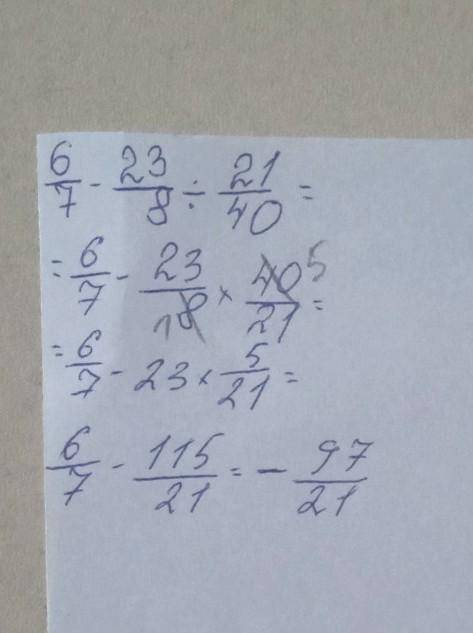 6/7 - 23/8 ÷ 21/40 =
= 6/7 - 23/8 1 × 40/21 5 =
= 6/7 - 23 × 5/21 =
6/7 - 115/21 = - 97/21